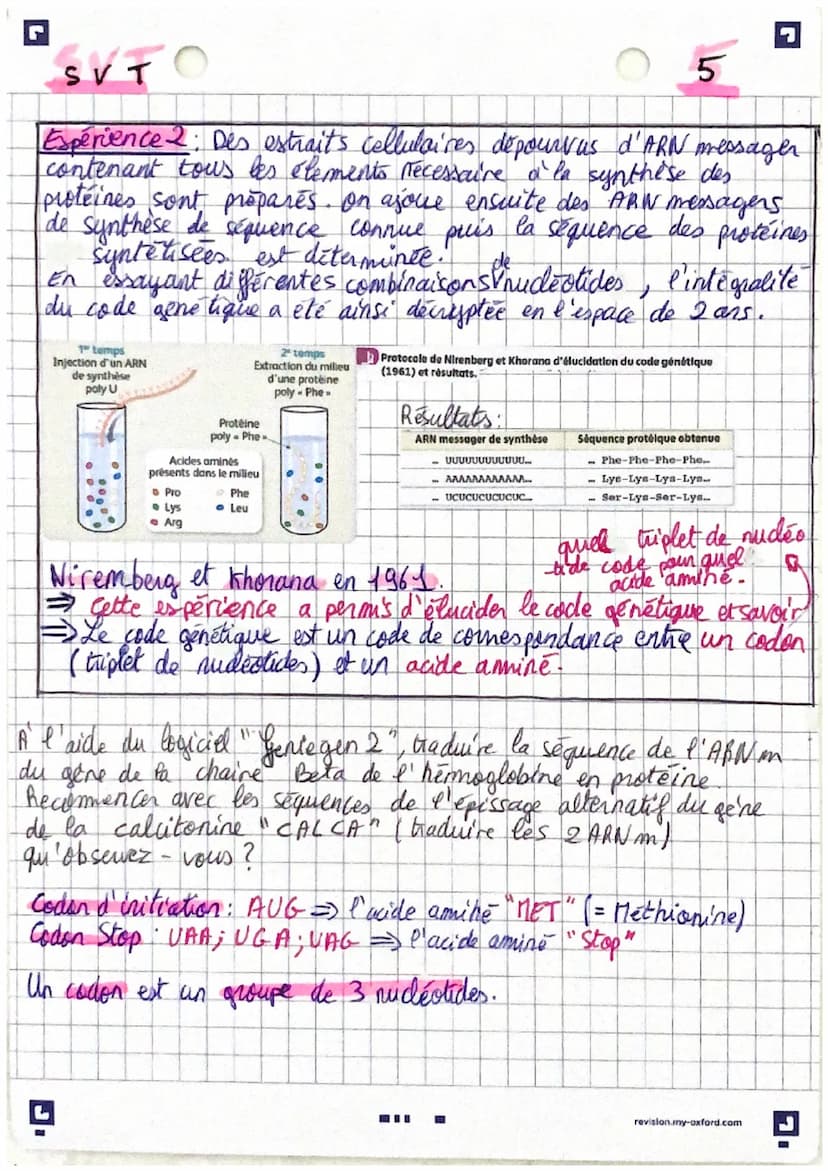 SVT
5
Expérience 2 : Des extraits cellulaires dépourvus d'ARN messager
contenant tous les éléments nécessaire à la synthèse des
protéines sont préparés. On ajoue ensuite des ARN messagers
de synthèse de séquence connue puis la séquence des protéines
syntétisées est déterminée.
En essayant différentes combinaisons de nucléotides, l'intégralité
du code génétique a été ainsi décryptée en l'espace de 2 ans.
1er temps
Injection d'un ARN
de synthèse
poly U
2e temps
Extraction du milieu
d'une protéine
poly « Phe »
Protéine
poly « Phe »
Acides aminés
présents dans le milieu
Pro
Phe
Lys
Leu
Arg
b Protocole de Nirenberg et Khorana d'élucidation du code génétique
(1961) et résultats.
Résultats :
ARN messager de synthèse Séquence protéique obtenue
... UUUUUUUUUUUU... ... Phe-Phe-Phe-Phe...
... AAAAAAAAAAAA... ... Lys-Lys-Lys-Lys...
... UCUCUCUCUCUC... ... Ser-Lys-Ser-Lys...
Niremberg et Khorana en 1961.
⇒ Cette expérience a permis d'élucider le code génétique et savoir
quel triplet de nucléo
tide code pour quel
acide aminé.
⇒ Le code génétique est un code de correspondance entre un codon
(triplet de nucléotides) et un acide aminé.
À l'aide du logiciel "Geniegen 2", traduire la séquence de l'ARNm
du gène de la chaine Beta de l'hémoglobine en protéine.
Recommencer avec les séquences de l'épissage alternatif du gène
de la calcitonine "CALCA" (traduire les 2 ARNm)
qu'observez-vous ?
Codon d'initiation : AUG ⇒ l'acide aminé "MET" (= Méthionine)
Codon Stop : UAA ; UGA ; UAG ⇒ l'acide aminé "Stop"
Un codon est un groupe de 3 nucléotides.
revision.my-oxford.com